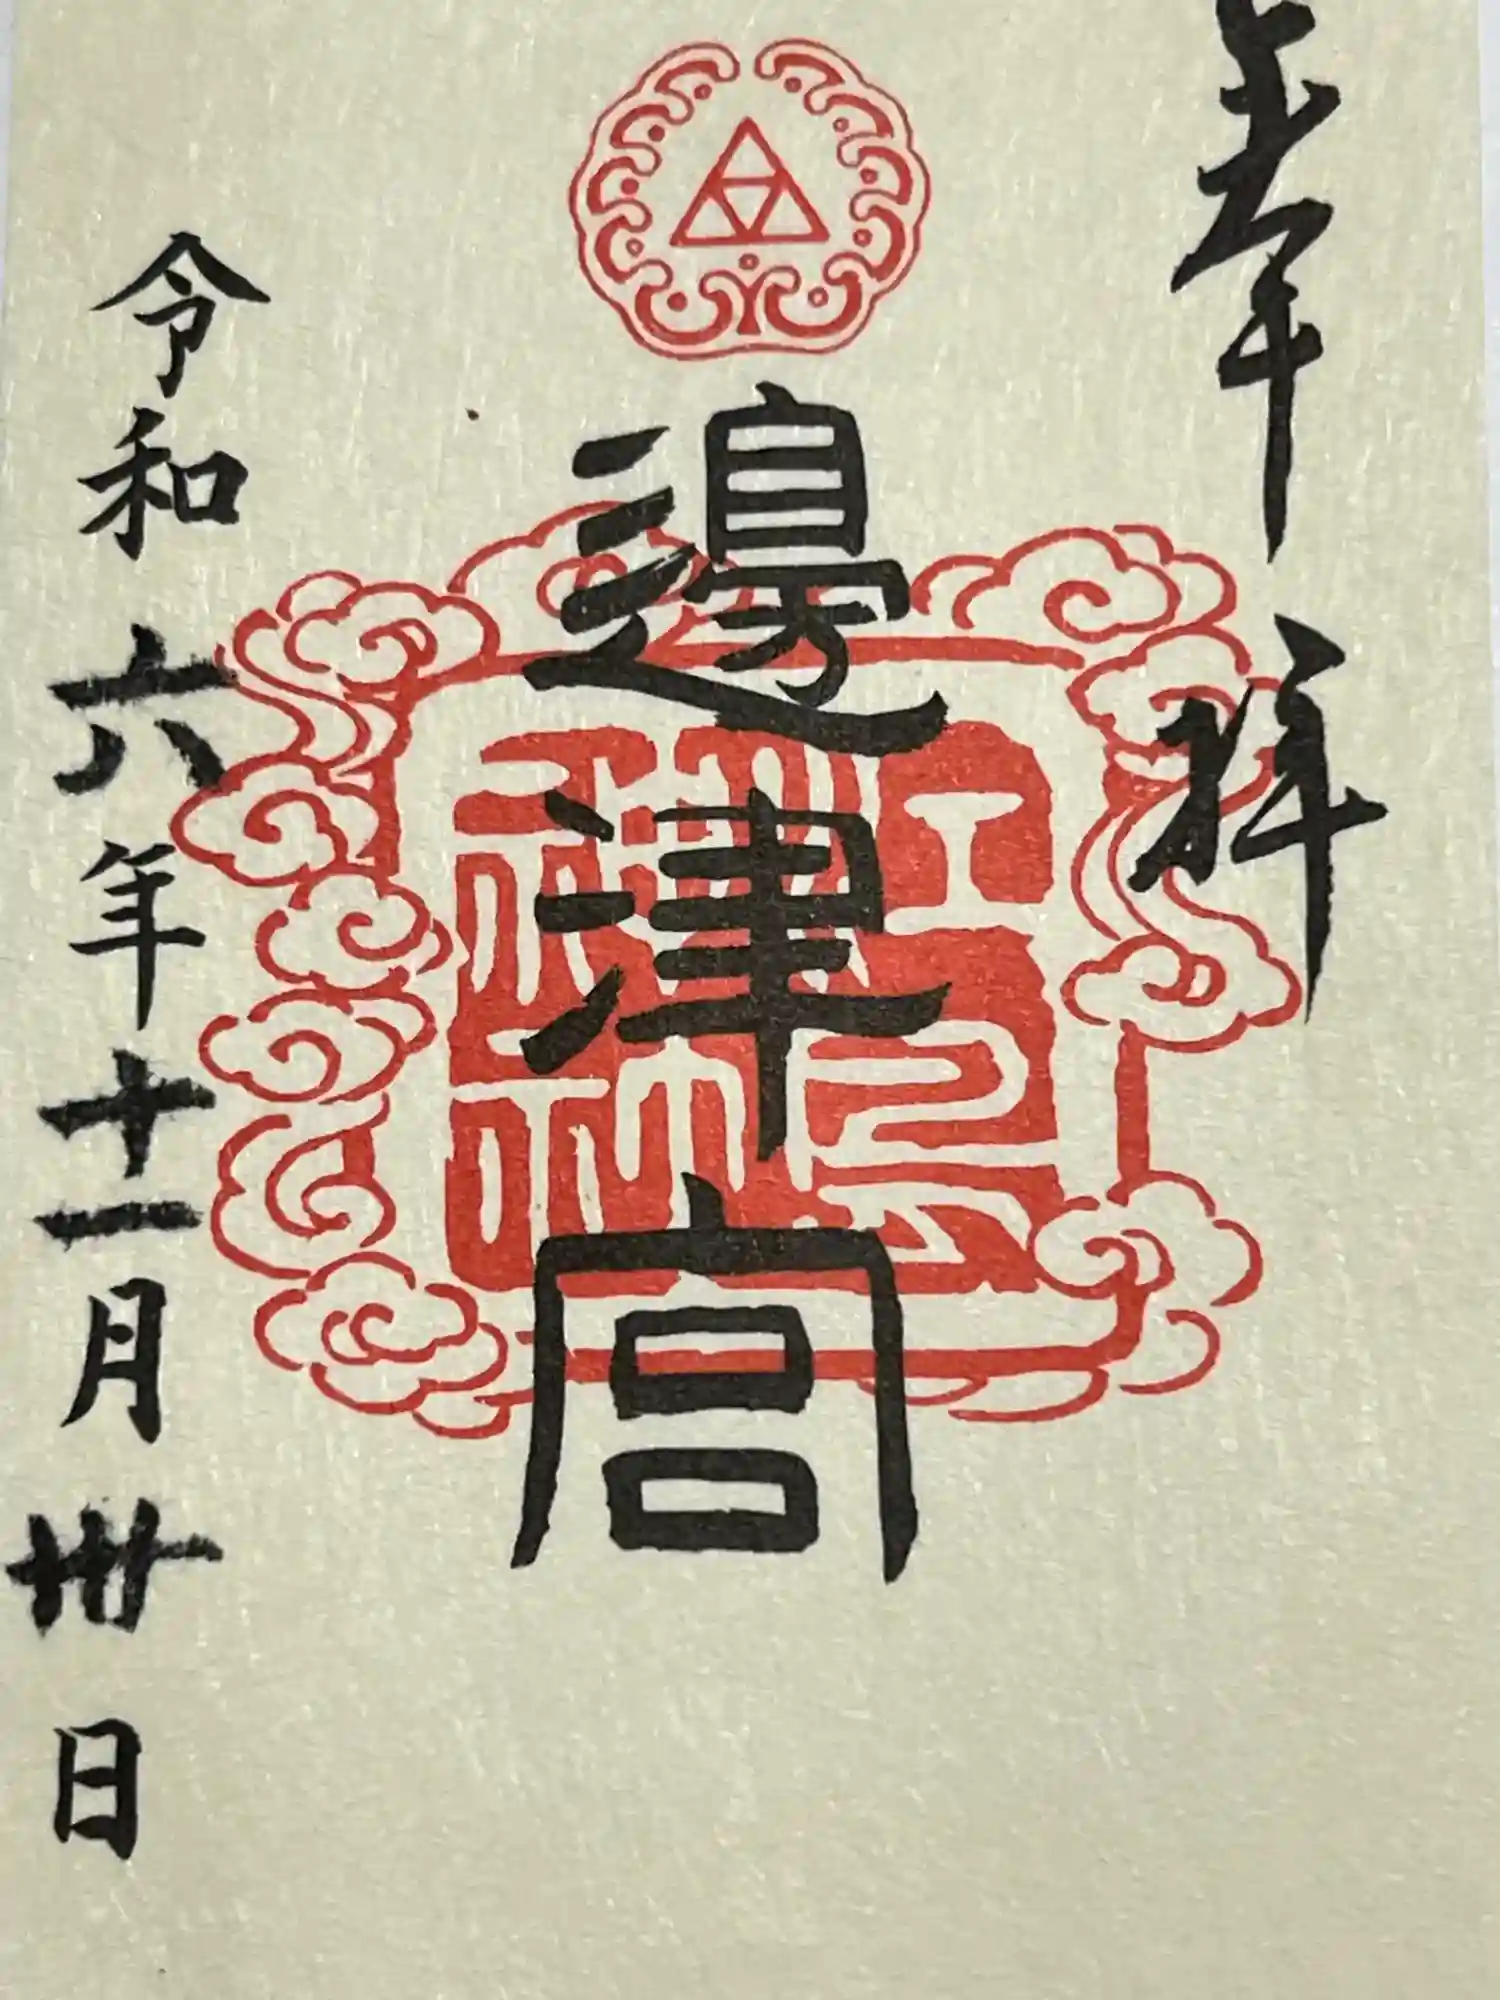 奉拝
邉津宮
令和六年十一月卅日